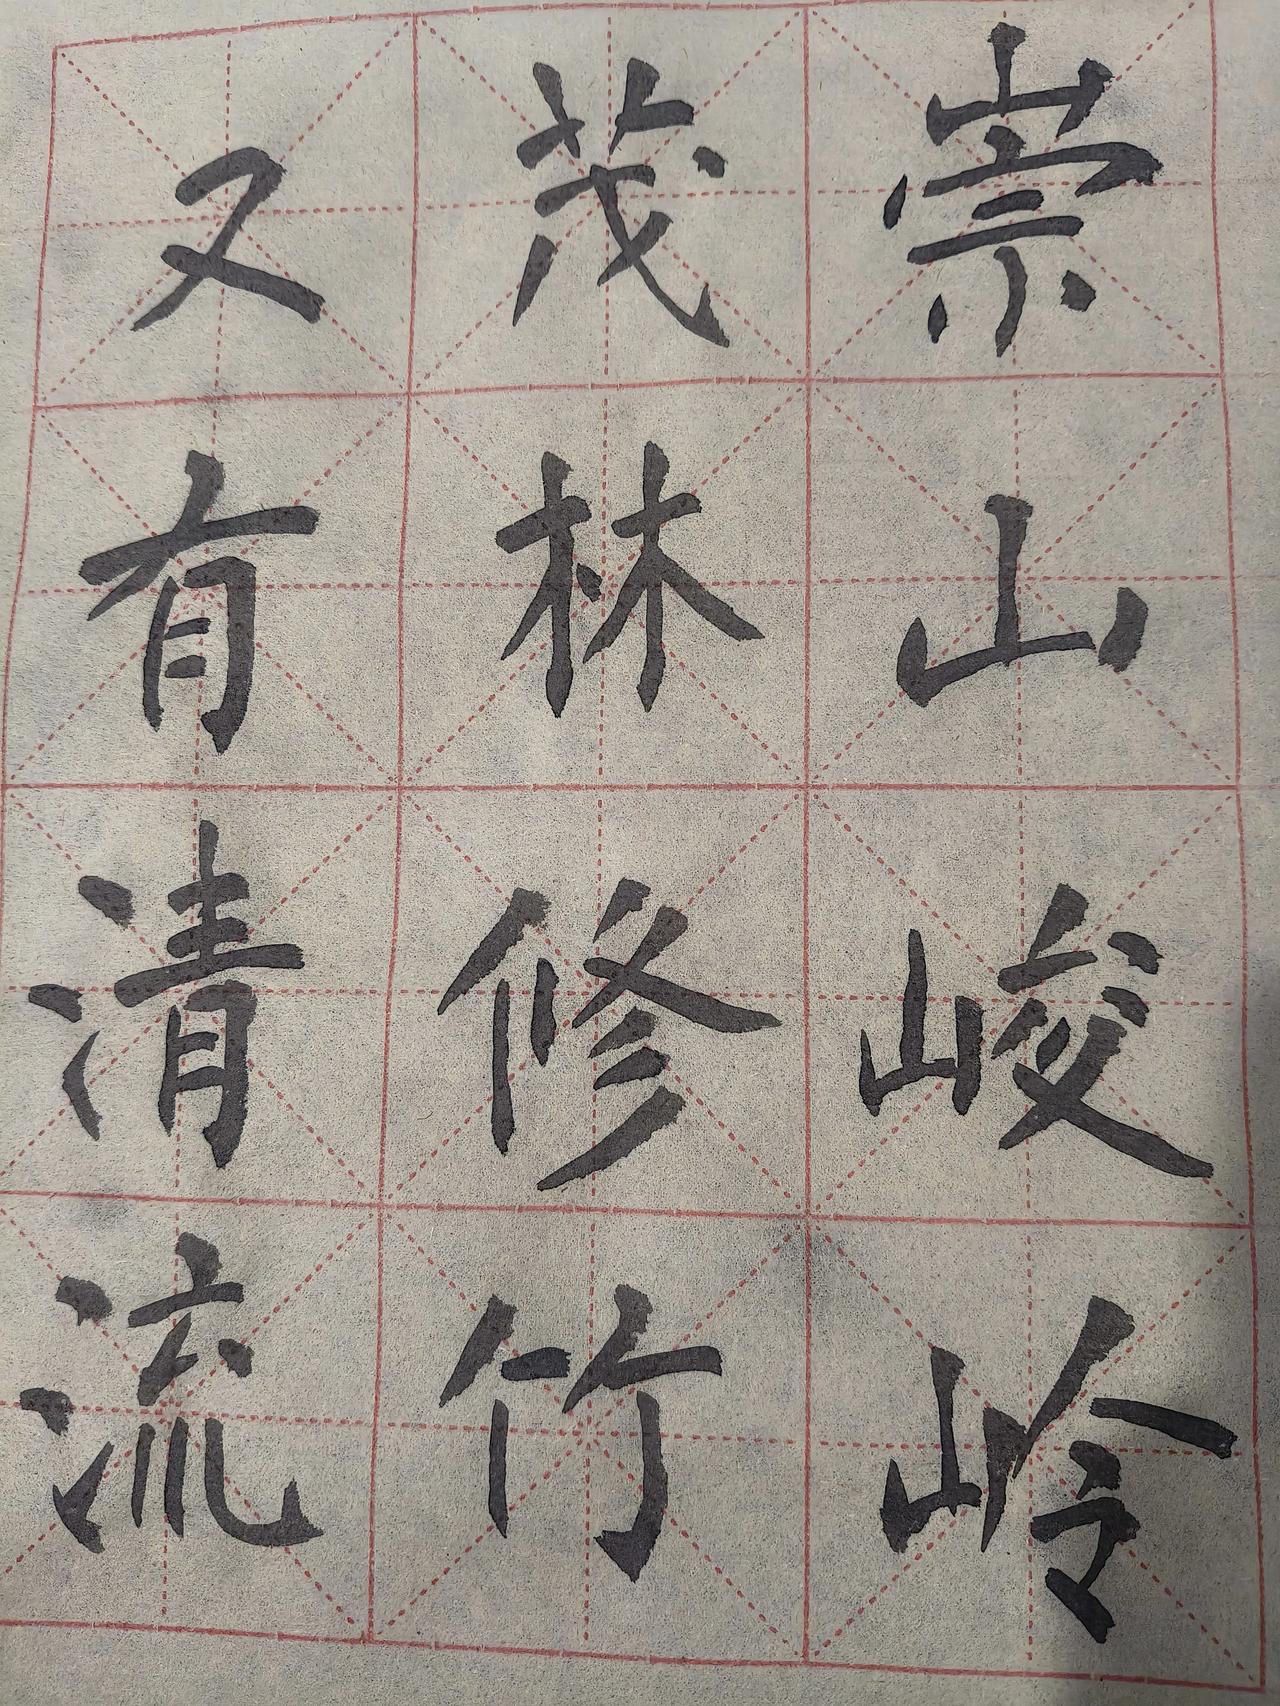 崇山峻岭
茂林修竹
又有清流